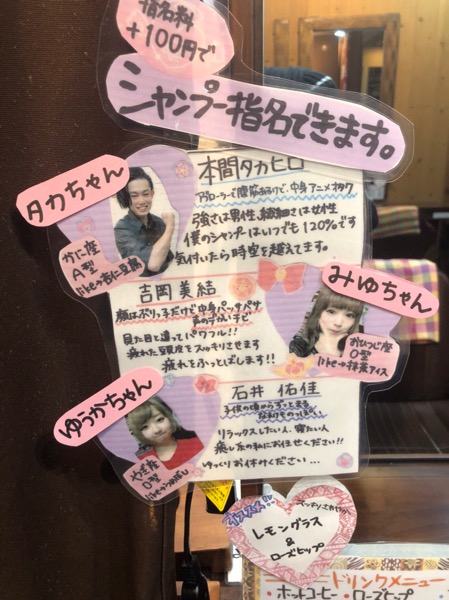 指名料
+100円で
シャンプー指名できます。
タカちゃん
かに座
A型
like→杏仁豆腐
本間タカヒロ
アブローラーで腹筋あるけど、中身アニメオタク
強さは男性、繊細さは女性
僕のシャンプーはいつでも120%です
気付いたら時空を越えてます。
みゆちゃん
おひつじ座
O型
like→抹茶アイス
吉岡美結
顔はぶりっ子だけど中身バッサバサ
声のデカいチビ
見た目と違ってパワフル!!
疲れた頭皮をスッキリさせます
疲れをふっとばします!!
ゆうかちゃん
やぎ座
O型
石井 佑佳
子供の頃からずっとまるな
リラックスしたい人、寝たい人
癒し系の私にお任せください!!
ゆっくりお休みください…
オススメ!!
レモングラス
&
ローズヒップ
ドリンクメニュー
・ホットコーヒー ・ローズヒップ